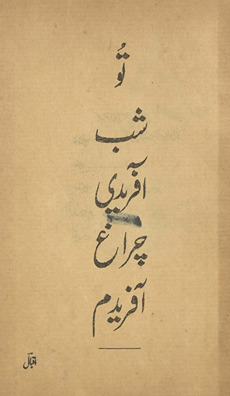 تُو
شب
آفریدی
چراغ
آفریدم
اقبال